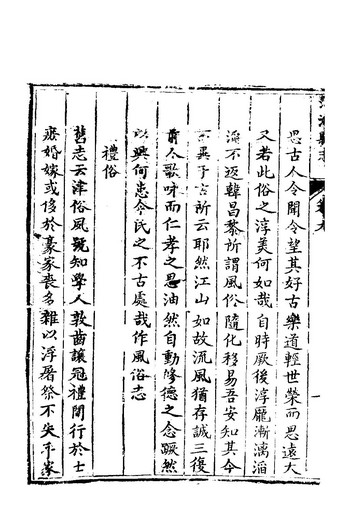 思古人令聞令望其好古樂道輕世榮而思遠大
又若此俗之淳美何如哉自時厥後淳龐漸漓淄
淪不返韓昌黎所謂風俗隨化移易吾安知其今
異于古所云耶然江山如故流風猶存誠三復
前人歌咏而仁孝之思油然自動修德之念蹶然
以興何患今民之不古處哉作風俗志
禮俗
舊志云漳俗風競知學人敦齒讓冠禮間行於士
族婚嫁或侈於豪家喪多雜以浮屠祭不失乎家